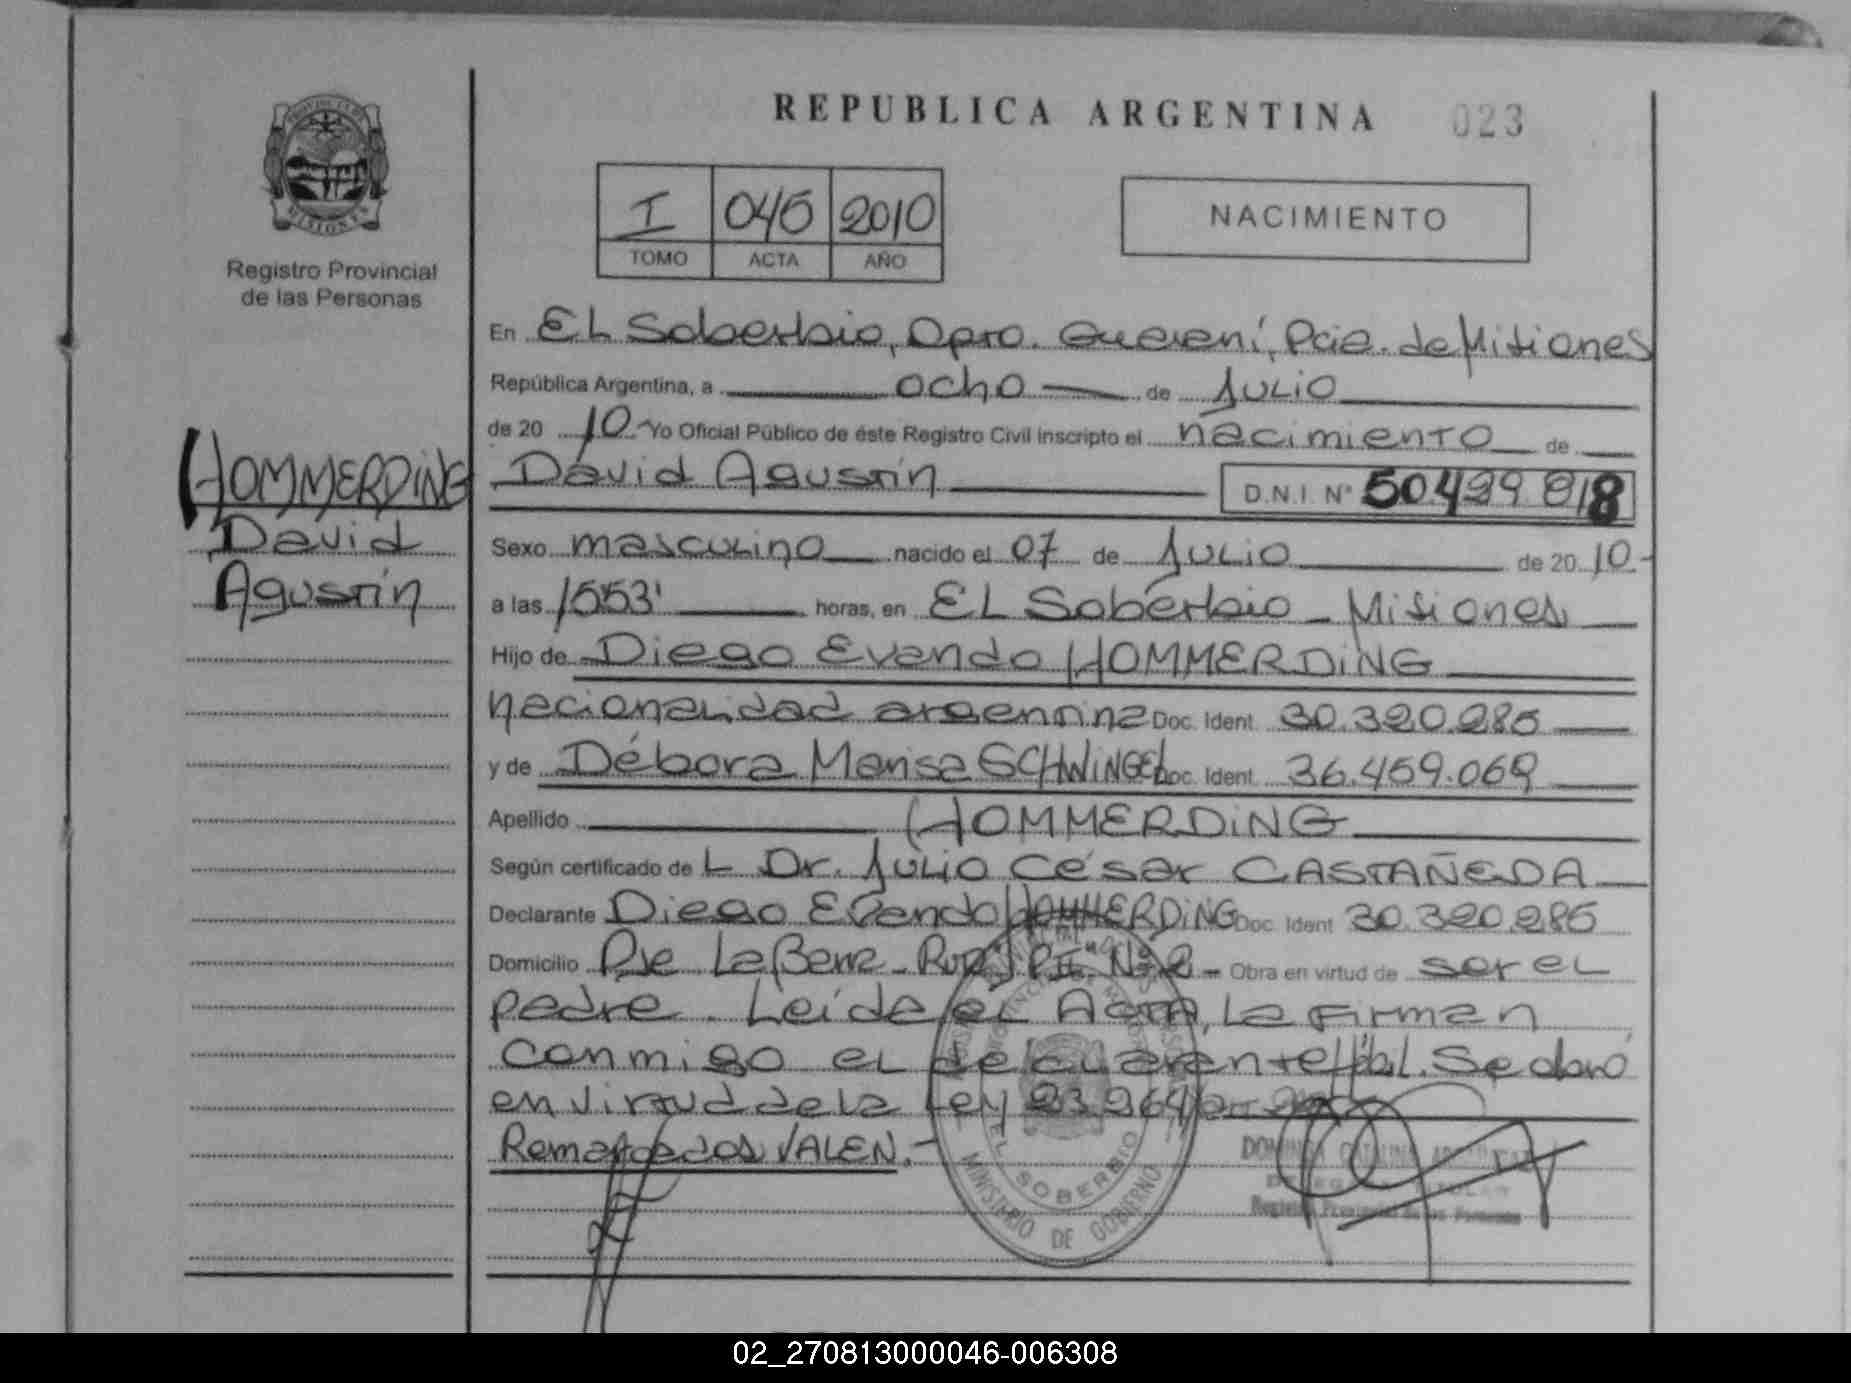 REPUBLICA ARGENTINA 023
PROVINCIA DE MISIONES
Registro Provincial
de las Personas
I 045 2010
TOMO ACTA AÑO
NACIMIENTO
En EL Soberbio, Dpto. Guaraní, Pcia. de Misiones
República Argentina, a ocho de JULIO
de 20 10 Yo Oficial Público de éste Registro Civil inscripto el nacimiento de
HOMMERDiNG
David
Agustín
David Agustín D.N.I. Nº 50.499.818
Sexo masculino nacido el 07 de JULIO de 20 10.-
a las 1553' horas, en EL Soberbio - Misiones
Hijo de Diego Evando HOMMERDiNG
nacionalidad argentina Doc. Ident. 30.320.285
y de Débora Marisa SCHWiNGEL Doc. Ident. 36.459.069
Apellido HOMMERDiNG
Según certificado de L Dr. JULIO César CASTAÑEDA
Declarante Diego Evando HOMMERDiNG Doc. Ident 30.320.285
Domicilio Pje La Bera - Nº 2 - Obra en virtud de ser el
padre. Leída el ACTA, la firman
conmigo el declarante Se labró
en virtud de la Ley
Remarcados VALEN.-
EL SOBERBIO
MINISTERIO DE GOBIERNO
02_270813000046-006308